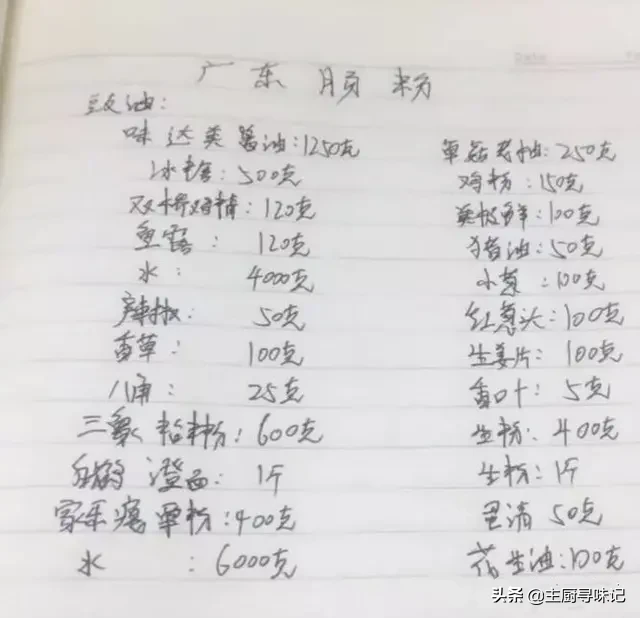 广东肠粉
豉油:
味达美酱油:1250克 草菇老抽:250克
冰糖:500克 鸡粉:150克
双桥味精:120克 美极鲜:100克
鱼露:120克 猪油:50克
水:4000克 小葱:100克
辣椒 50克 红葱头:100克
香草:100克 生姜片:100克
八角:25克 香叶:5克
三象粘米粉:600克 生粉:400克
白鹤澄面:1斤 生粉:1斤
家乐 粟粉:400克 蛋清 50克
水:6000克 花生油:100克
头条 @主厨寻味记